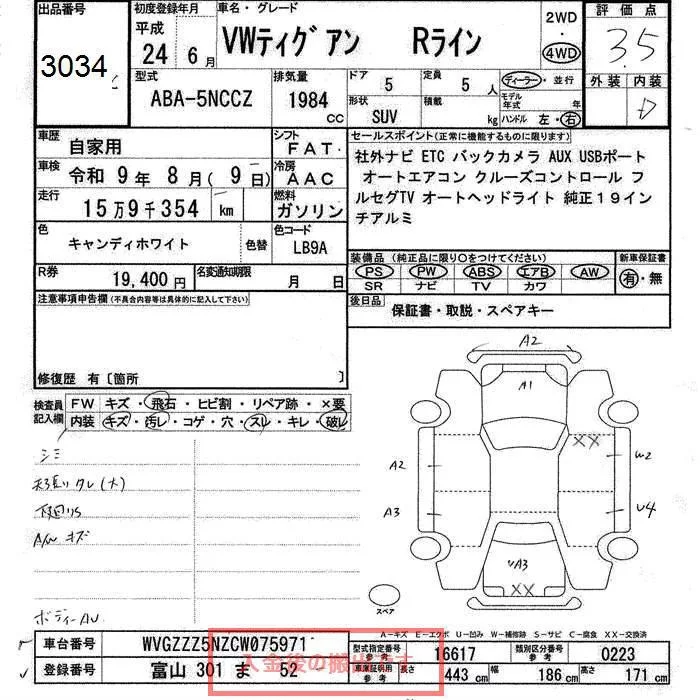 出品番号 初度登録年月 車名・グレード 2WD 評価点
3034 平成 24 6月 VWティグアン Rライン 4WD 3.5
型式 排気量 ドア 5 定員 5人 ディーラー・並行 外装 内装
ABA-5NCCZ 1984 cc 形状 SUV 積載 kg モデル年式 年 D
ハンドル 左・右
車歴 自家用 シフト FAT セールスポイント(正常に機能するものに限ります)
車検 令和 9年 8月(9日) 冷房 AAC 社外ナビ ETC バックカメラ AUX USBポート
オートエアコン クルーズコントロール フ
走行 15万9千354 km 燃料 ガソリン ルセグTV オートヘッドライト 純正19イン
チアルミ
色 キャンディホワイト 色替 色コード LB9A
装備品(純正品に限り○をつけてください) 新車保証書
R券 19,400円 名変通知期限 月 日 PS PW ABS エアB AW 有・無
SR ナビ TV カワ
注意事項申告欄(不具合内容等は具体的に記入して下さい) 後日品 保証書・取説・スペアキー
修復歴 有〔箇所 〕
検査員記入欄 FW キズ・飛石・ヒビ割・リペア跡・×要
内装 キズ・汚レ・コゲ・穴・スレ・キレ・破レ
A2
A1
XX
A2 W2
A3 U4
UA3
XX
シミ
下廻りS
A/W キズ
ボディーAU
スペア
A-キズ E-エクボ U-凹み W-補修跡 S-サビ C-腐食 XX-交換済
車台番号 WVGZZZ5NZCW075971 型式指定番号 参考 16617 類別区分番号 参考 0223
登録番号 富山 301 ま 52 車庫証明用 参考 長さ 443 cm 幅 186 cm 高さ 171 cm
入金後の搬出です